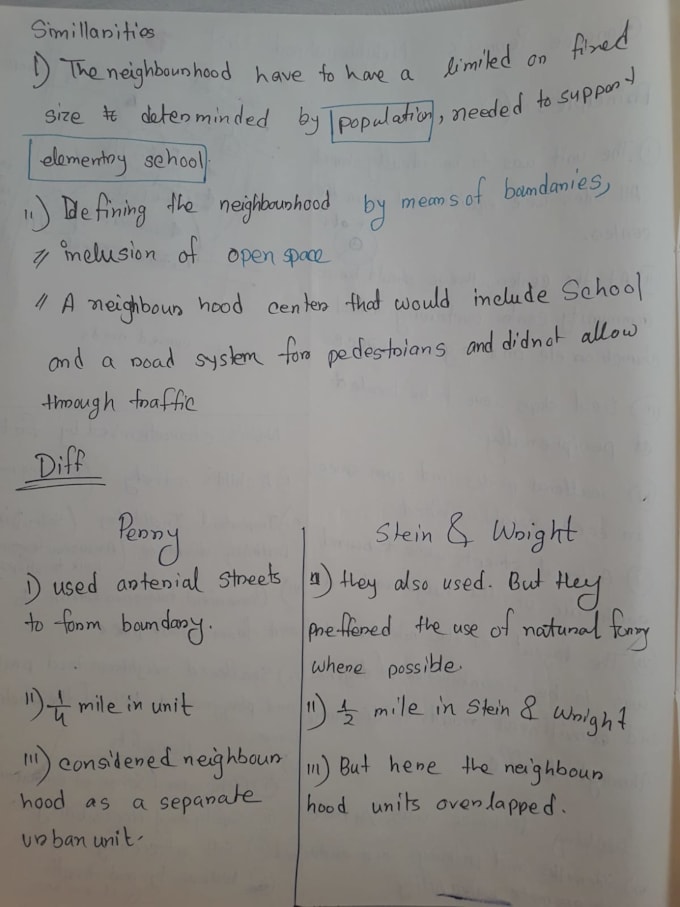 Simillarities
i) The neighbourhood have to have a limited or fixed
size & determinded by population, needed to support
elementry school.
ii) Defining the neighbourhood by means of boundaries,
// inclusion of open space
// A neighbour hood center that would include School
and a road system for pedestrians and didnot allow
through traffic
Diff
Perry
i) used arterial streets
to form boundary.
ii) 1/4 mile in unit
iii) considered neighbour
hood as a separate
urban unit.
Stein & Wright
i) they also used. But they
preffered the use of natural form
where possible.
ii) 1/2 mile in Stein & Wright
iii) But here the neighbour
hood units overlapped.